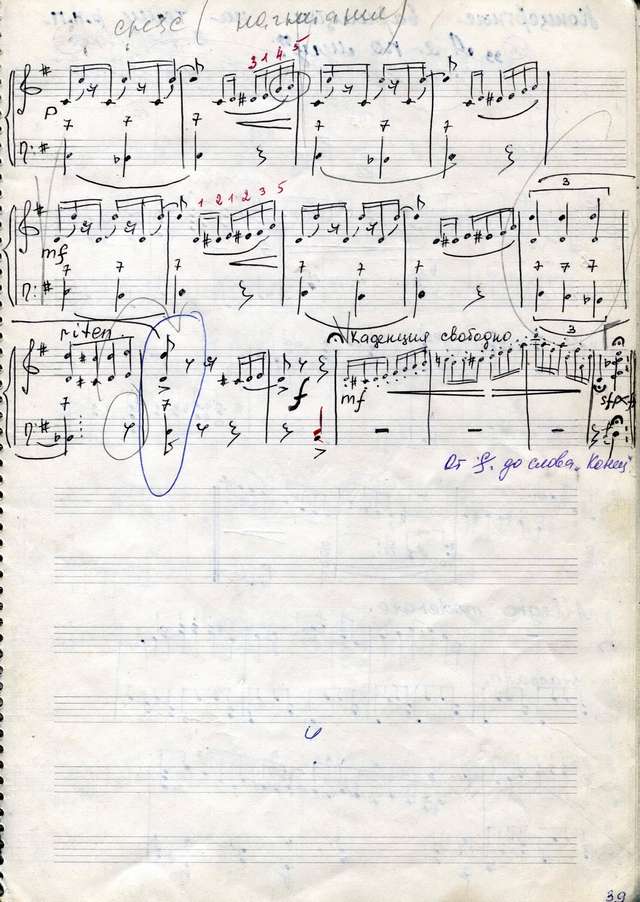 (нагнетания)
3 1 4 5
p
7 7 7 7 7 7
1 2 1 2 3 5
3
mf
7 7 7 7 7 7 7 7 7
3
riten. Каденция свободно
f mf sf
7 7
От 𝄋 до слова „Конец"
39